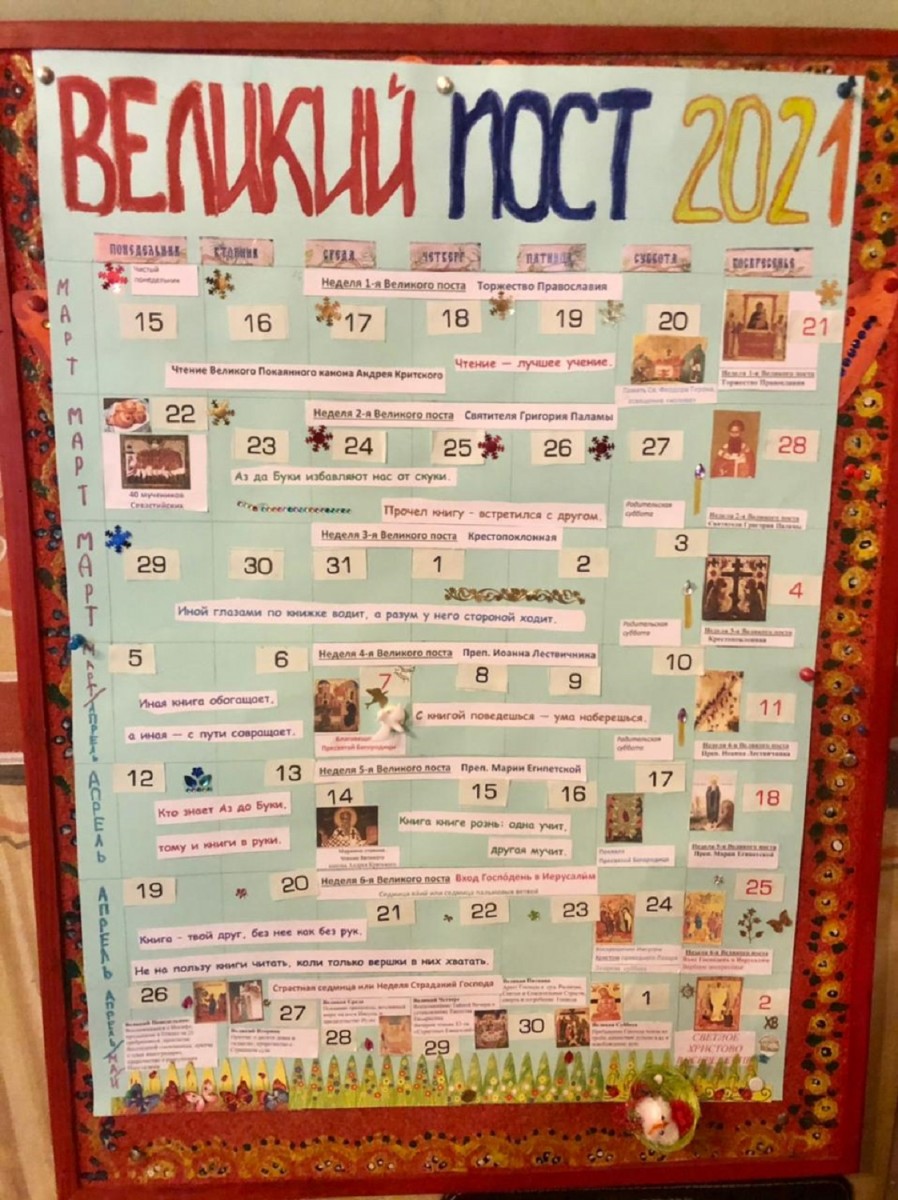 ВЕЛИКИЙ ПОСТ 2021
ПОНЕДЕЛЬНИК ВТОРНИК СРЕДА ЧЕТВЕРГ ПЯТНИЦА СУББОТА ВОСКРЕСЕНЬЕ
МАРТ
Чистый
понедельник
Неделя 1-я Великого поста Торжество Православия
15 16 17 18 19 20 21
Чтение — лучшее учение.
Чтение Великого Покаянного канона Андрея Критского
Неделя 1-я Великого поста
Торжество Православия
МАРТ
22
Неделя 2-я Великого поста Святителя Григория Паламы
23 24 25 26 27 28
40 мучеников
Севастийских
Аз да Буки избавляют нас от скуки.
Прочел книгу - встретился с другом.
Родительская
суббота
Неделя 2-я Великого поста
Святителя Григория Паламы
МАРТ
Неделя 3-я Великого поста Крестопоклонная
29 30 31 1 2 3 4
Иной глазами по книжке водит, а разум у него стороной ходит.
Родительская
суббота
Неделя 3-я Великого поста
Крестопоклонная
МАРТ/АПРЕЛЬ
Неделя 4-я Великого поста Преп. Иоанна Лествичника
5 6 7 8 9 10 11
Иная книга обогащает,
а иная — с пути совращает.
Благовещение
Пресвятой Богородицы
С книгой поведешься — ума наберешься.
Родительская
суббота
Неделя 4-я Великого поста
Преп. Иоанна Лествичника
АПРЕЛЬ
Неделя 5-я Великого поста Преп. Марии Египетской
12 13 14 15 16 17 18
Кто знает Аз да Буки,
тому и книги в руки.
Чтение Великого
канона Андрея Критского
Книга книге рознь: одна учит,
другая мучит.
Похвала
Пресвятой Богородицы
Неделя 5-я Великого поста
Преп. Марии Египетской
АПРЕЛЬ
Неделя 6-я Великого поста Вход Госпо́день в Иерусали́м
19 20 21 22 23 24 25
Книга - твой друг, без нее как без рук.
Не на пользу книги читать, коли только вершки в них хватать.
Неделя 6-я Великого поста
АПРЕЛЬ/МАЙ
Страстная седмица или Неделя Страданий Господа
26 27 28 29 30 1 2
Великий Понедельник
Великий Вторник
Великая Среда
Великий Четверг
Великая Пятница
Великая Суббота
ХВ
СВЕТЛОЕ
ХРИСТОВО